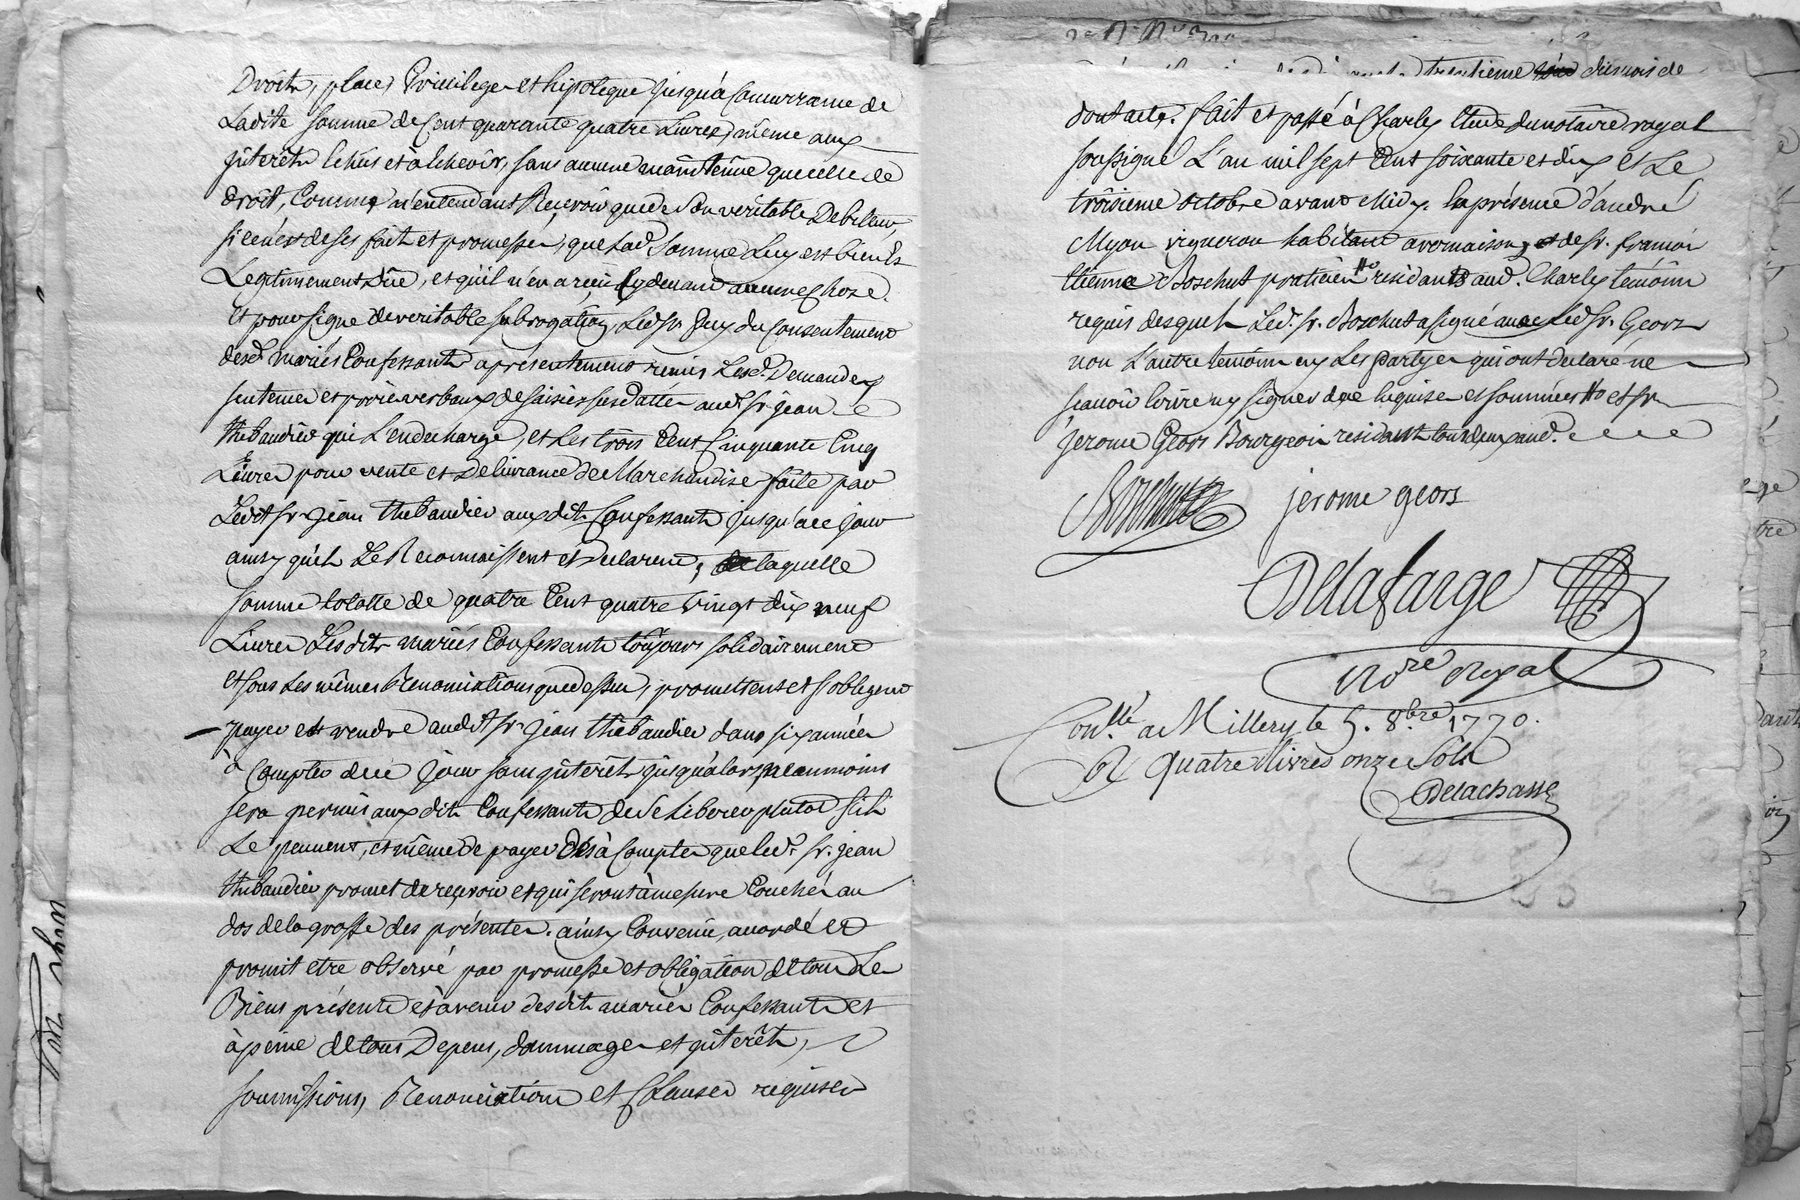 Droits, place, Privilege et hipoteque jusqu'à concurrance de
Ladite somme de Cent quarante quatre Livres, même aux
jnterêts échûs et à échéoir, sans aucune maintenüe que celle de
droit, Comme n'entendant Recevoir que de Son veritable Debiteur,
si ce n'est de ses fait et promesses, que lad. Somme Luy est bien et
Legitimement Düe, et qu'il n'en a reçû cy devant aucune chose.
Et pour signe de veritable subrogation, Led. sr. Guy du Consentement
desd. mariés Confessants a présentement remis Lesd. Demandes
sentence et procés verbaux de saisies susdattés aud. sr. jean
thibaudier qui L'en decharge, et Les trois Cent Cinquante Cinq
Livres pour vente et Delivrance de Marchandise faite par
Ledit sr. jean thibaudier auxdits Confessants jusqu'à ce jour
ainsy qu'ils Le Reconnaissent et Declarent, de laquelle
somme totalle de quatre Cent quatre vingt dix neuf
Livres Lesdits mariés Confessants toûjours solidairement
et sous Les mêmes Renonciations que dessus, promettent et s'obligent
payer et rendre audit sr. jean thibaudier dans six années
à Compter de ce jour sans jnterêts jusqu'alors, neanmoins
sera permis auxdits Confessants de Se Liberer plutot s'ils
Le peuvent, et même de payer Des à Comptes que led. sr. jean
thibaudier promet de reçevoir et qui seront à mesure Couchés au
dos de la grosse des présentes. ainsy Convenû, accordé et
promit etre observé par promesse et obligation de tous Les
Biens présents et à venir desdits mariés Confessants et
à peine de tous Depens, dommages et jnterêts,
soumissions, Renonciations et Clauses requises
trentieme du mois de
dont acte. fait et passé à Charly Etude du notaire royal
soussigné L'an mil sept Cent soixante et dix et Le
troisieme octobre avant Midy. En présence d'andré
Myon vigneron habitant a vernaison, et de sr. françois
Etienne Boschut praticien # residants aud. Charly temoins
requis desquels Led. sr. Boschut a signé avec Led. sr. Geors
non L'autre temoin ny Les partyes qui ont declaré ne
sçavoir Ecrire ny signer de ce Enquises et sommées # et sr.
jerome Geors Bourgeois residant tous deux aud.
Boschut
jerome geors
Delafarge
No.re Royal
Con.llé a Millery le 5. 8.bre 1770.
R quatre Livres onze Sols
Delachasse